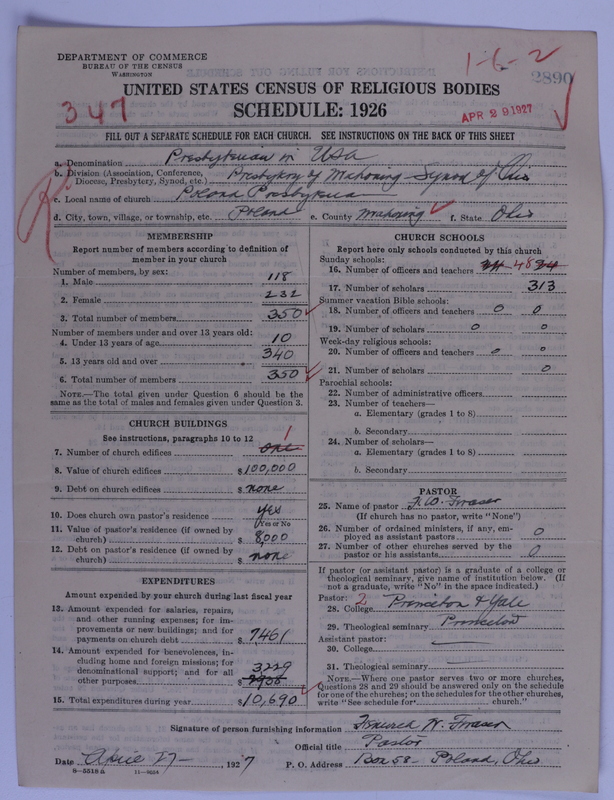 DEPARTMENT OF COMMERCE
BUREAU OF THE CENSUS
WASHINGTON
1-6-2
2890
UNITED STATES CENSUS OF RELIGIOUS BODIES
SCHEDULE: 1926
347
APR 29 1927
FILL OUT A SEPARATE SCHEDULE FOR EACH CHURCH. SEE INSTRUCTIONS ON THE BACK OF THIS SHEET
a. Denomination Presbyterian in USA
b. Division (Association, Conference, Diocese, Presbytery, Synod, etc.) Presbytery of Mahoning Synod of Ohio
c. Local name of church Poland Presbyterian
d. City, town, village, or township, etc. Poland e. County Mahoning f. State Ohio
MEMBERSHIP
Report number of members according to definition of
member in your church
Number of members, by sex:
1. Male 118
2. Female 232
3. Total number of members 350
Number of members under and over 13 years old:
4. Under 13 years of age 10
5. 13 years old and over 340
6. Total number of members 350
NOTE.—The total given under Question 6 should be
same as the total of males and females given under Question 3.
CHURCH BUILDINGS
See instructions, paragraphs 10 to 12
7. Number of church edifices one 1
8. Value of church edifices $100,000
9. Debt on church edifices $ none
10. Does church own pastor's residence yes
(Yes or No)
11. Value of pastor's residence (if owned by
church) $ 8,000
12. Debt on pastor's residence (if owned by
church) $ none
EXPENDITURES
Amount expended by your church during last fiscal year
13. Amount expended for salaries, repairs,
and other running expenses; for im-
provements or new buildings; and for
payments on church debt $ 7,461
14. Amount expended for benevolences, in-
cluding home and foreign missions; for
denominational support; and for all
other purposes $ 3,229
15. Total expenditures during year $10,690
CHURCH SCHOOLS
Report here only schools conducted by this church
Sunday schools:
16. Number of officers and teachers 48
17. Number of scholars 313
Summer vacation Bible schools:
18. Number of officers and teachers 0 0
19. Number of scholars 0 0
Week-day religious schools:
20. Number of officers and teachers 0 0
21. Number of scholars 0
Parochial schools:
22. Number of administrative officers
23. Number of teachers—
a. Elementary (grades 1 to 8)
b. Secondary
24. Number of scholars—
a. Elementary (grades 1 to 8)
b. Secondary
PASTOR
25. Name of pastor F. W. Fraser
(If church has no pastor, write "None")
26. Number of ordained ministers, if any, em-
ployed as assistant pastors 0
27. Number of other churches served by the
pastor or his assistants 0
If pastor (or assistant pastor) is a graduate of a college or
theological seminary, give name of institution below. (If
not a graduate, write "No" in the space indicated.)
Pastor: 2
28. College Princeton & Yale
29. Theological seminary Princeton
Assistant pastor:
30. College
31. Theological seminary
NOTE.—Where one pastor serves two or more churches,
Questions 28 and 29 should be answered only on the schedule
for one of the churches; on the schedules for the other churches,
write "See schedule for church."
Signature of person furnishing information W. Fraser
Official title Pastor
Date April 27 1927 P. O. Address Box 58 Poland, Ohio
8—5518 a 11—9034